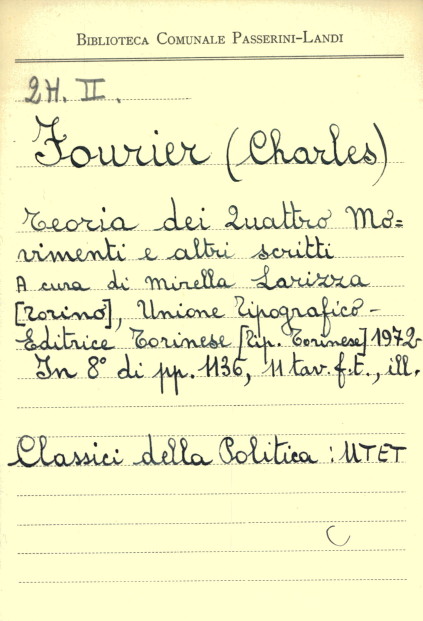 BIBLIOTECA COMUNALE PASSERINI-LANDI
2H. II.
Fourier (Charles)
Teoria dei Quattro Mo=
vimenti e altri scritti
A cura di Mirella Larizza
[Torino], Unione Tipografico-
Editrice Torinese [Tip. Torinese] 1972
In 8° di pp. 1136, 11 tav. f.t., ill.
Classici della Politica : UTET
C